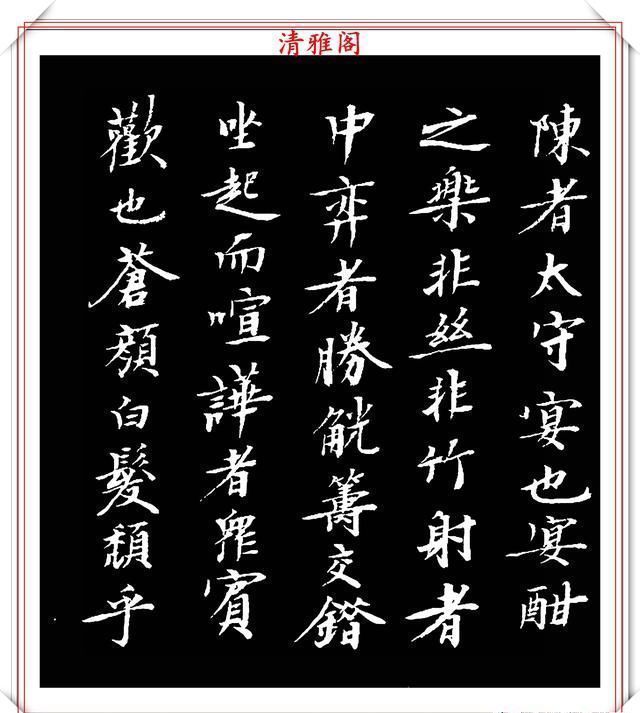 清雅阁
陳者太守宴也宴酣
之樂非絲非竹射者
中弈者勝觥籌交錯
坐起而喧譁者眾賓
歡也蒼顏白髮頹乎